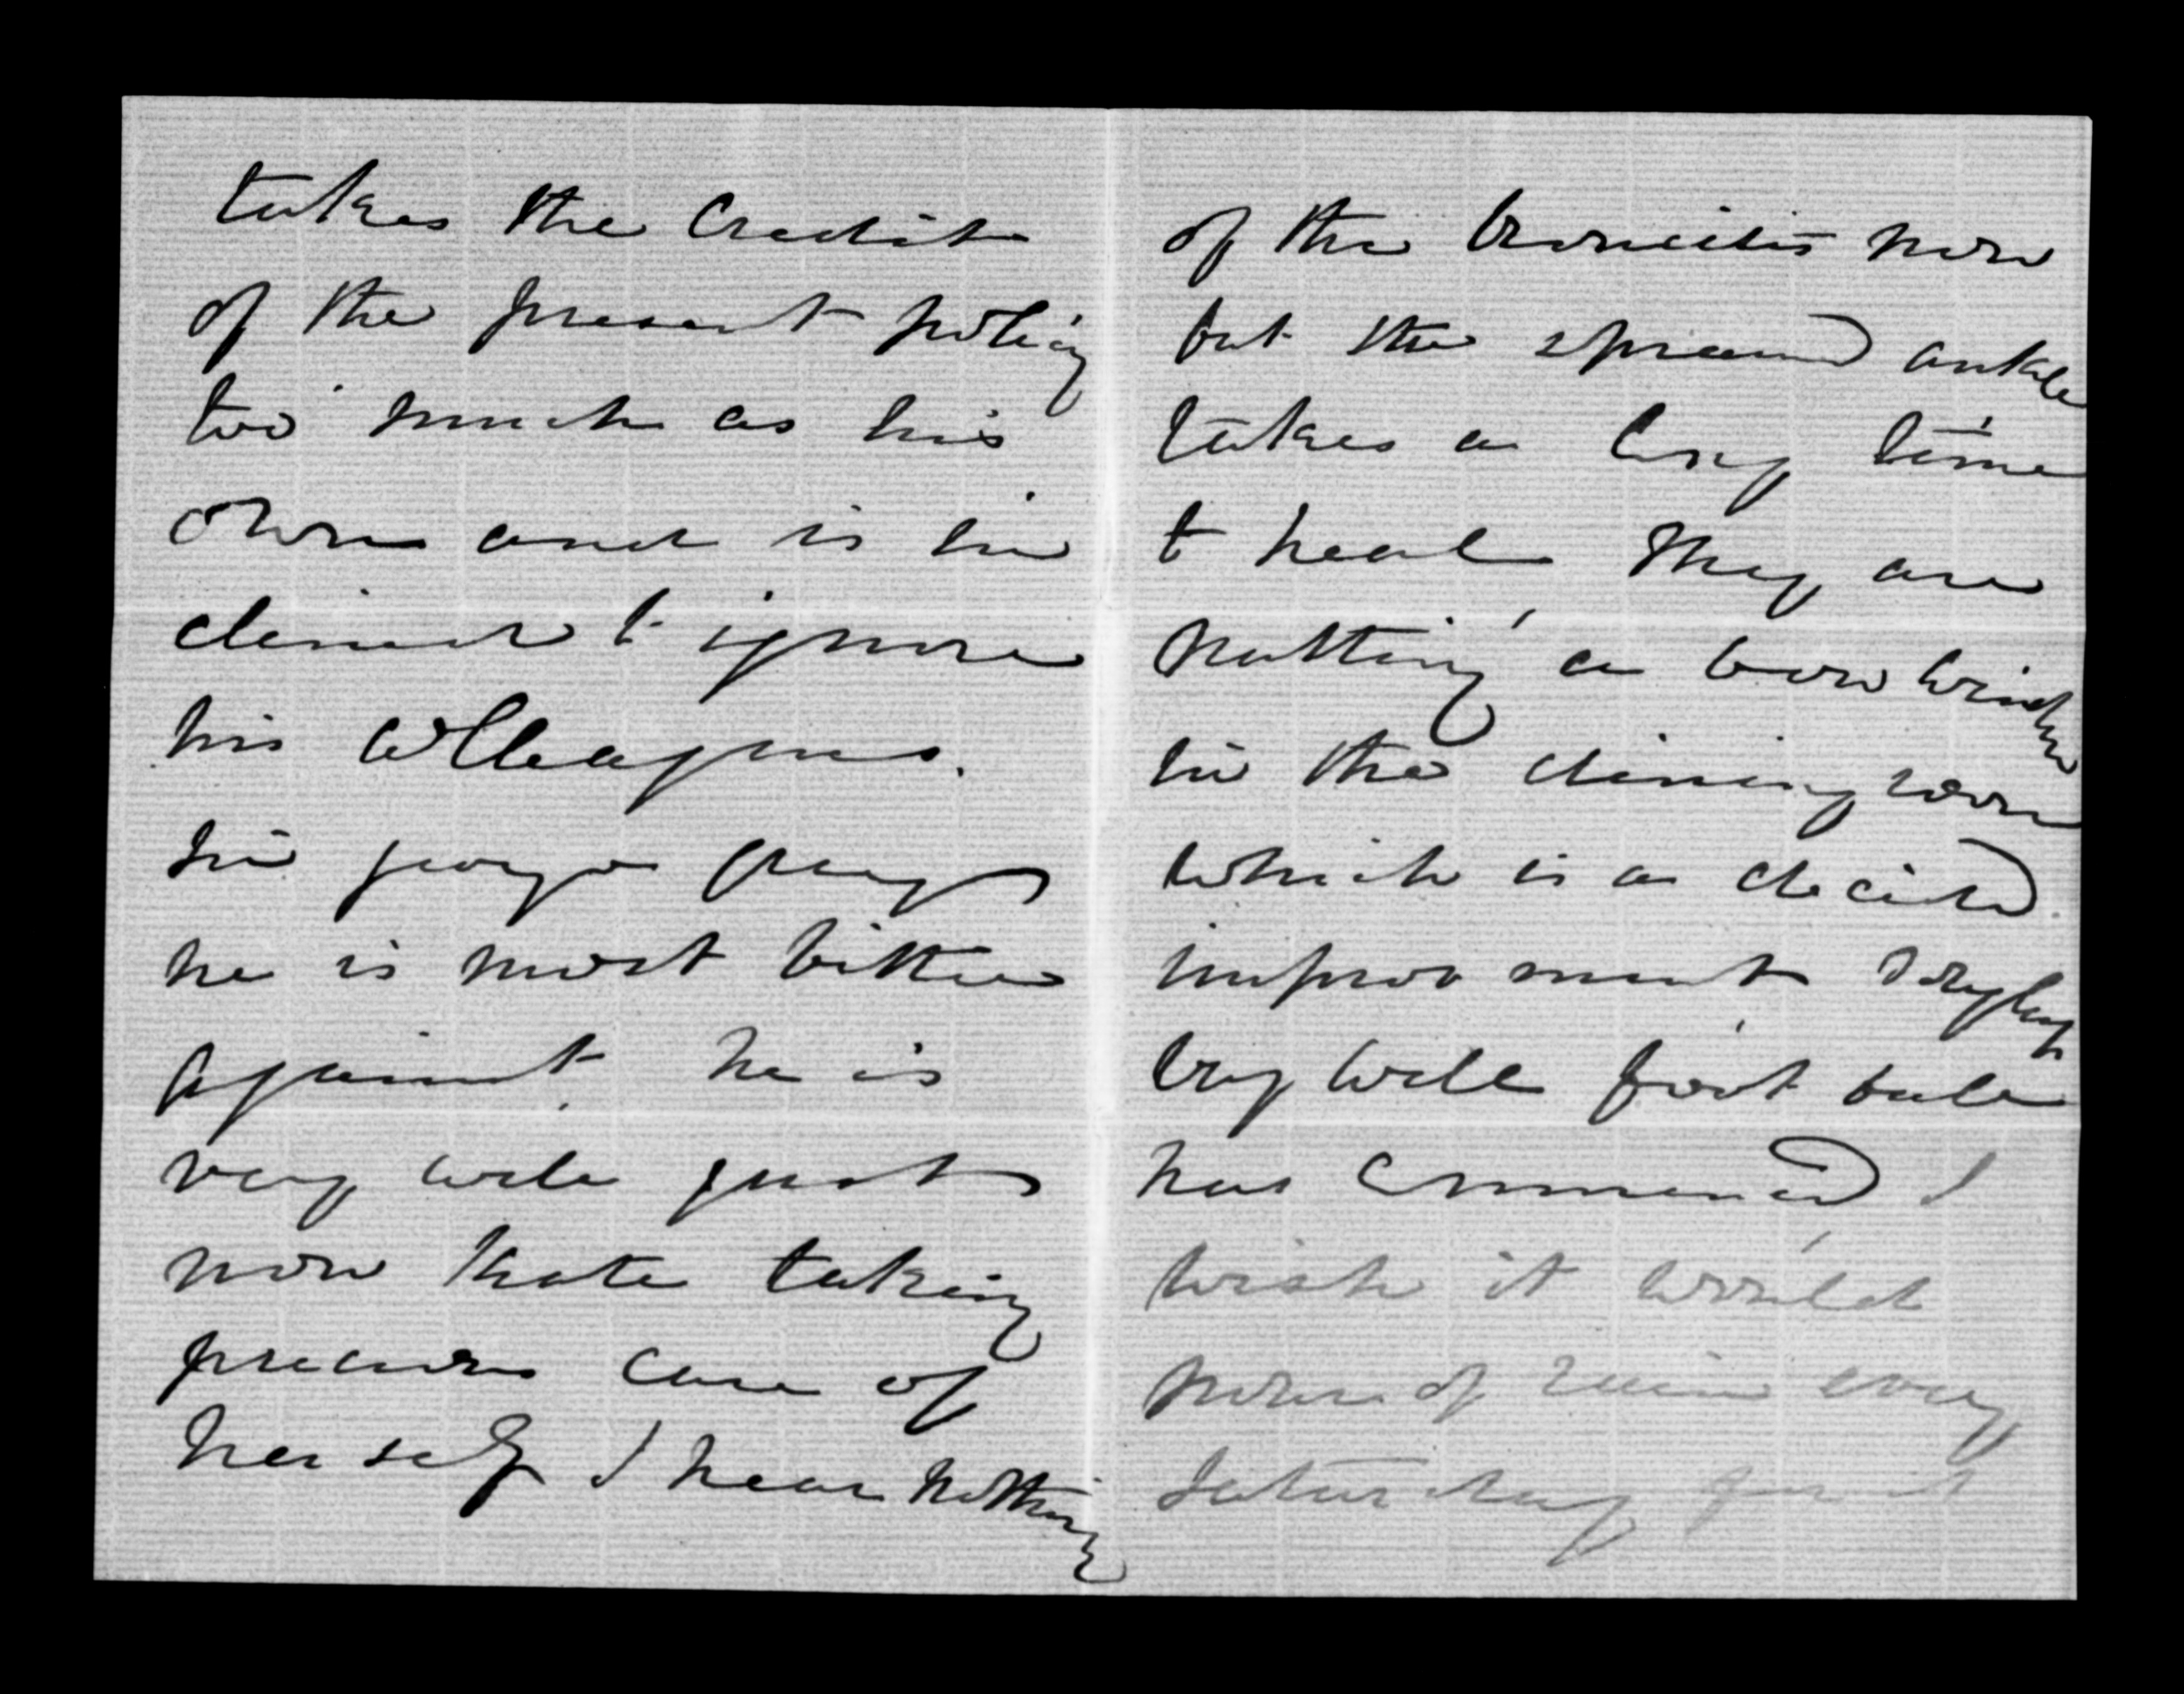 takes the Credit
of the present policy
too much as his
own and is in
clined to ignore
his Colleagues.
Sir George Grey
he is most bitter
against. he is
very well just
now Kate taking
precious care of
herself I hear nothing
of the now
but the ankle
takes a long time
to heal They are
putting a bow window
in the dining room
which is a decided
improvement
well foot ball
has commenced I
wish it would
pour of rain every
Saturday for it